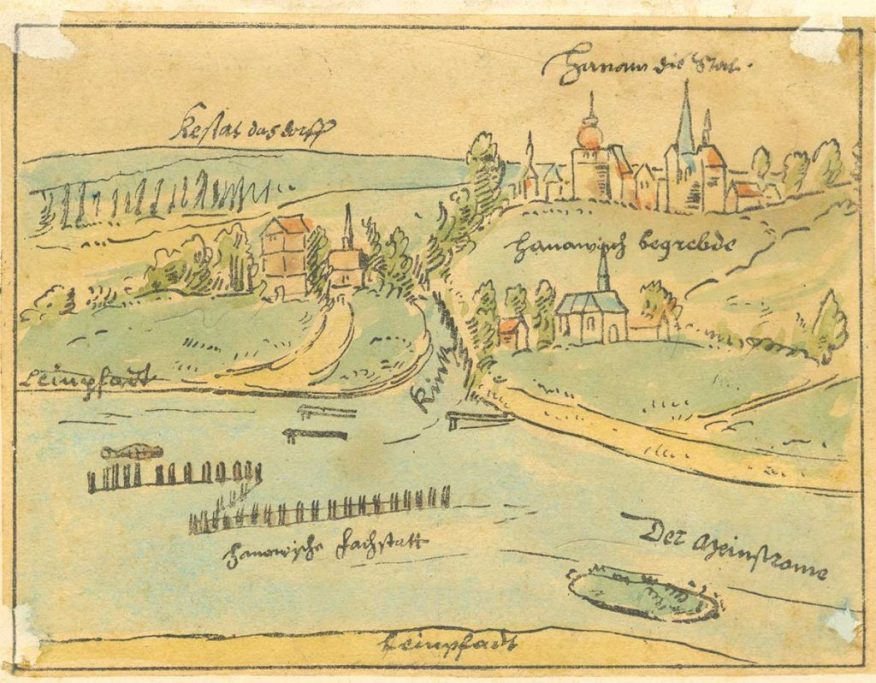 Hanaw die Stat.
Keſtat das dorff
Hanawiſch begrebde
Leinpfadt
Kintz
Hanawiſche fachſtatt
Der Meinſtrome
Leinpfadt